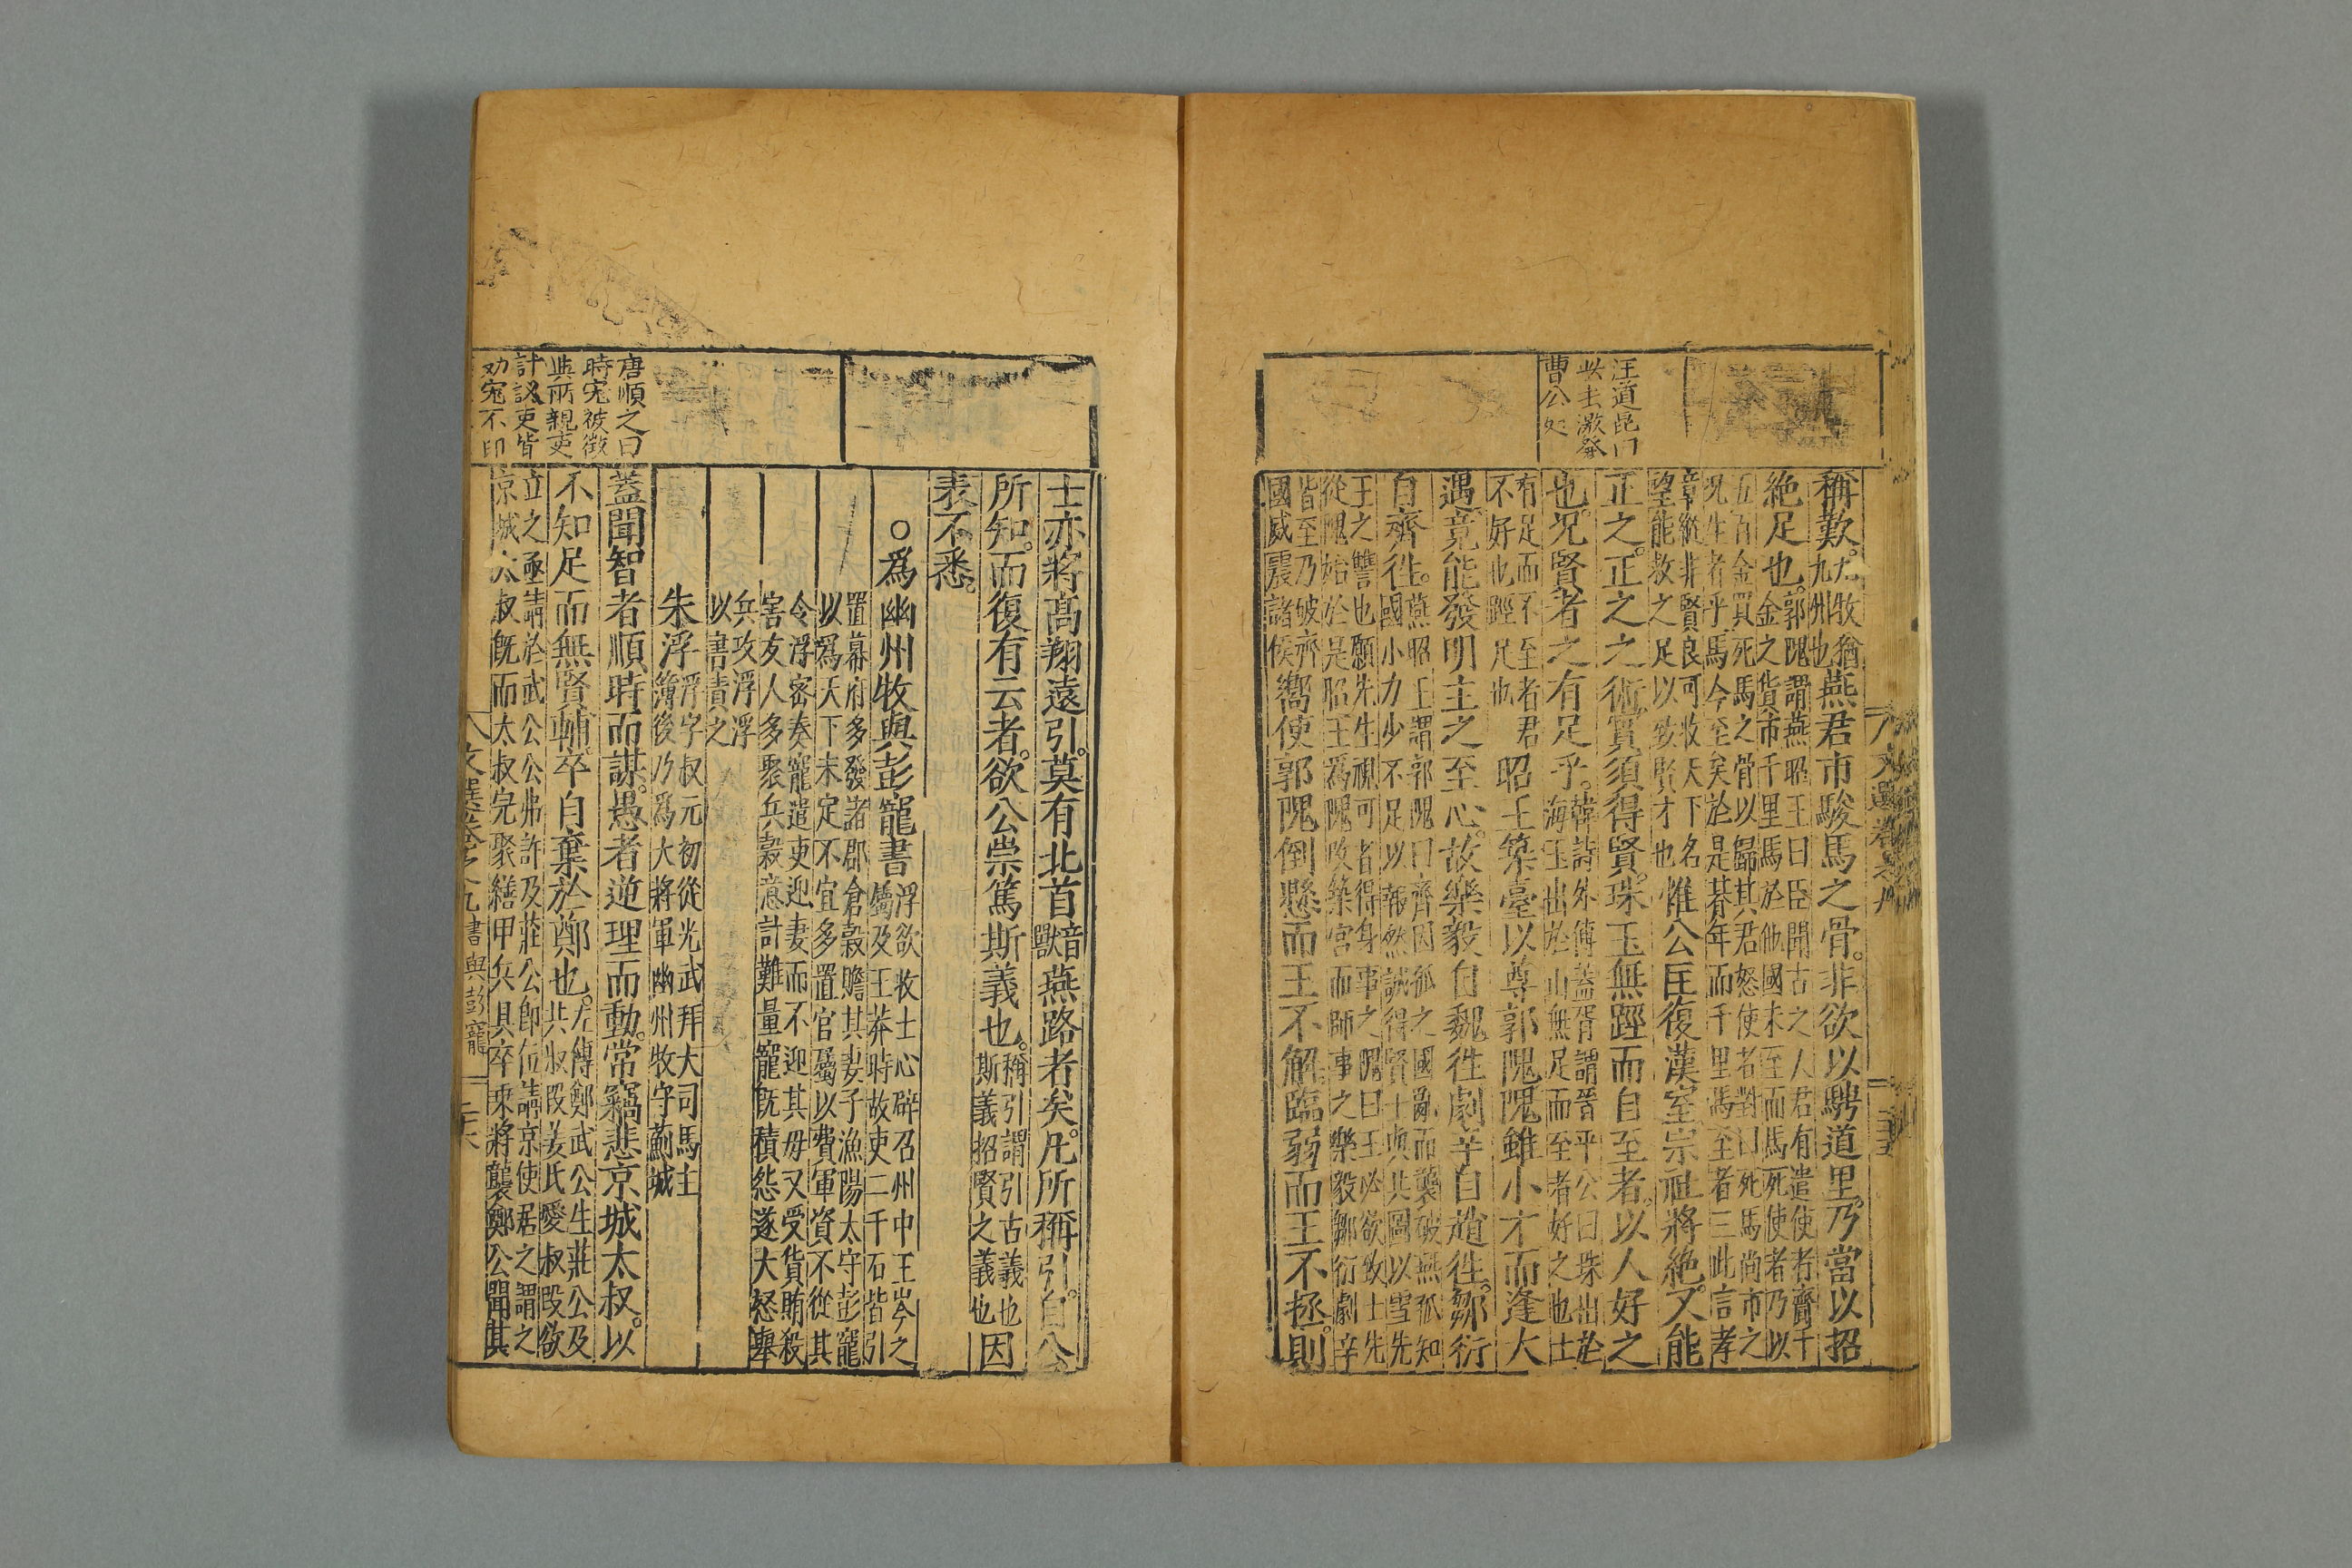 汪道昆曰
此士激發
曹公處
稱歎九牧猶九州也燕君市駿馬之骨非欲以騁道里乃當以招
絶足也郭隗謂燕昭王曰臣聞古之人君有遣使者齎千金之貨市千里馬於他國未至而馬死使者乃以
五百金買死馬之骨以歸其君怒使者對曰死馬尚市之况生者乎馬今至矣於是朞年而千里馬至者三此言孝
章縱非賢良可收天下名望能救之足以致賢才也惟公匡復漢室宗社將絶又能
正之正之之術實須得賢珠玉無脛而自至者以人好之
也况賢者之有足乎韓詩外傳蓋胥謂晉平公曰珠出於海玉出於山無足而至者好之也士
有足而不至者君不好也脛足也昭王築臺以尊郭隗隗雖小才而逢大
遇竟能發明主之至心故樂毅自魏徃劇辛自趙徃鄒衍
自齊徃燕昭王謂郭隗曰齊因孤之國亂而襲破燕孤知國小力少不足以報然誠得賢士與共圖以雪先
王之讐也願先生視可者得身事之隗曰王必欲致士先從隗始於是昭王爲隗改築宮而師事之樂毅鄒衍劇辛
皆至乃破齊國威震諸侯嚮使郭隗倒懸而王不解臨弱而王不拯則
士亦將高翔遠引莫有北首音獸燕路者矣凡所稱引自公
所知而復有云者欲公崇篤斯義也稱引謂引古義也斯義招賢之義也因
表不悉
○爲幽州牧與彭寵書浮欲收士心辟召州中王岑之屬及王莽時故吏二千石皆引
置幕府多發諸郡倉穀贍其妻子漁陽太守彭寵以爲天下未定不宜多置官屬以費軍資不從其
令浮密奏寵遣吏迎妻而不迎其母又受貨賄殺害友人多聚兵穀意計難量寵旣積怨遂大怒舉
兵攻浮浮以書責之
朱浮浮字叔元初從光武拜大司馬主簿後乃爲大將軍幽州牧守薊城
蓋聞智者順時而謀愚者逆理而動常竊悲京城太叔以
不知足而無賢輔卒自棄於鄭也左傳鄭武公生莊公及共叔叚姜氏愛叔叚欲
立之亟請於武公公弗許及莊公即位請京使居之謂之京城太叔旣而太叔完聚繕甲兵具卒乘將襲鄭公聞其
唐順之曰
時寃彼徵
與所親吏
計議吏皆
劝寃不印
文選卷之九 書 與彭寵